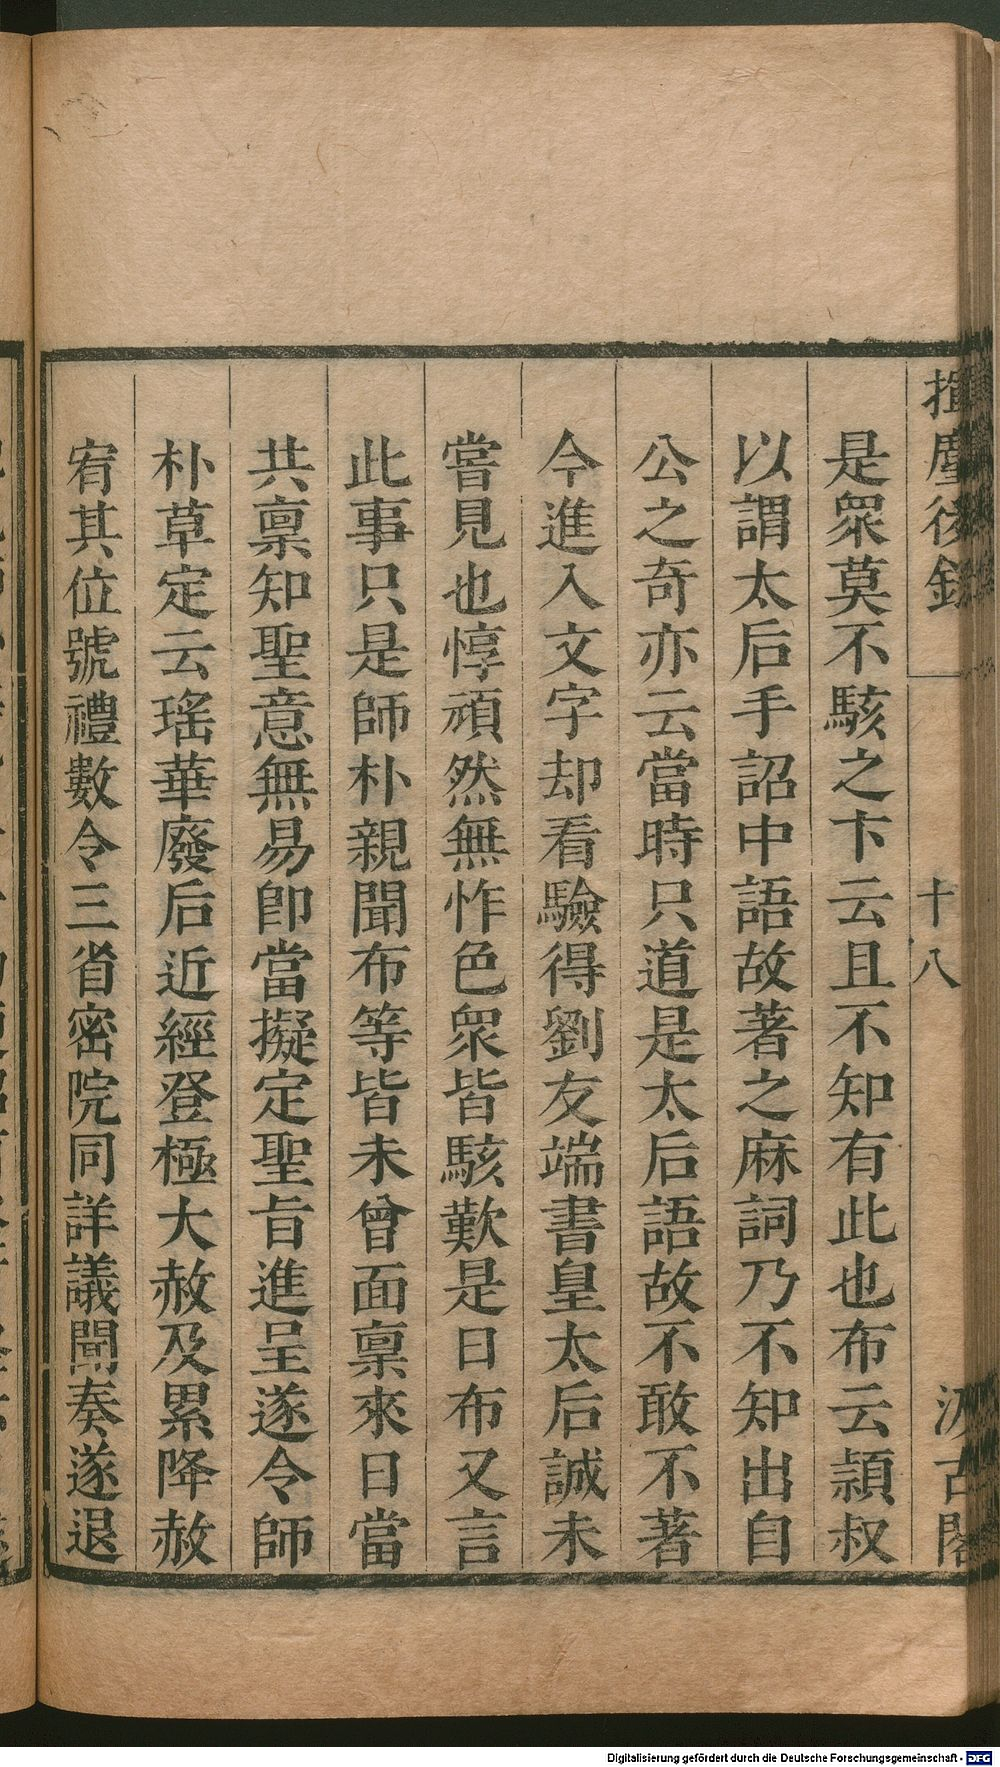 揮塵後錄 十八 汲古閣
是眾莫不駭之卞云且不知有此也布云潁叔
以謂太后手詔中語故著之麻詞乃不知出自
公之奇亦云當時只道是太后語故不敢不著
今進入文字却看驗得劉友端書皇太后誠未
嘗見也惇頑然無怍色眾皆駭歎是日布又言
此事只是師朴親聞布等皆未曾面稟來日當
共稟知聖意無易卽當擬定聖旨進呈遂令師
朴草定云瑤華廢后近經登極大赦及累降赦
宥其位號禮數令三省密院同詳議聞奏遂退
Digitalisierung gefördert durch die Deutsche Forschungsgemeinschaft - DFG